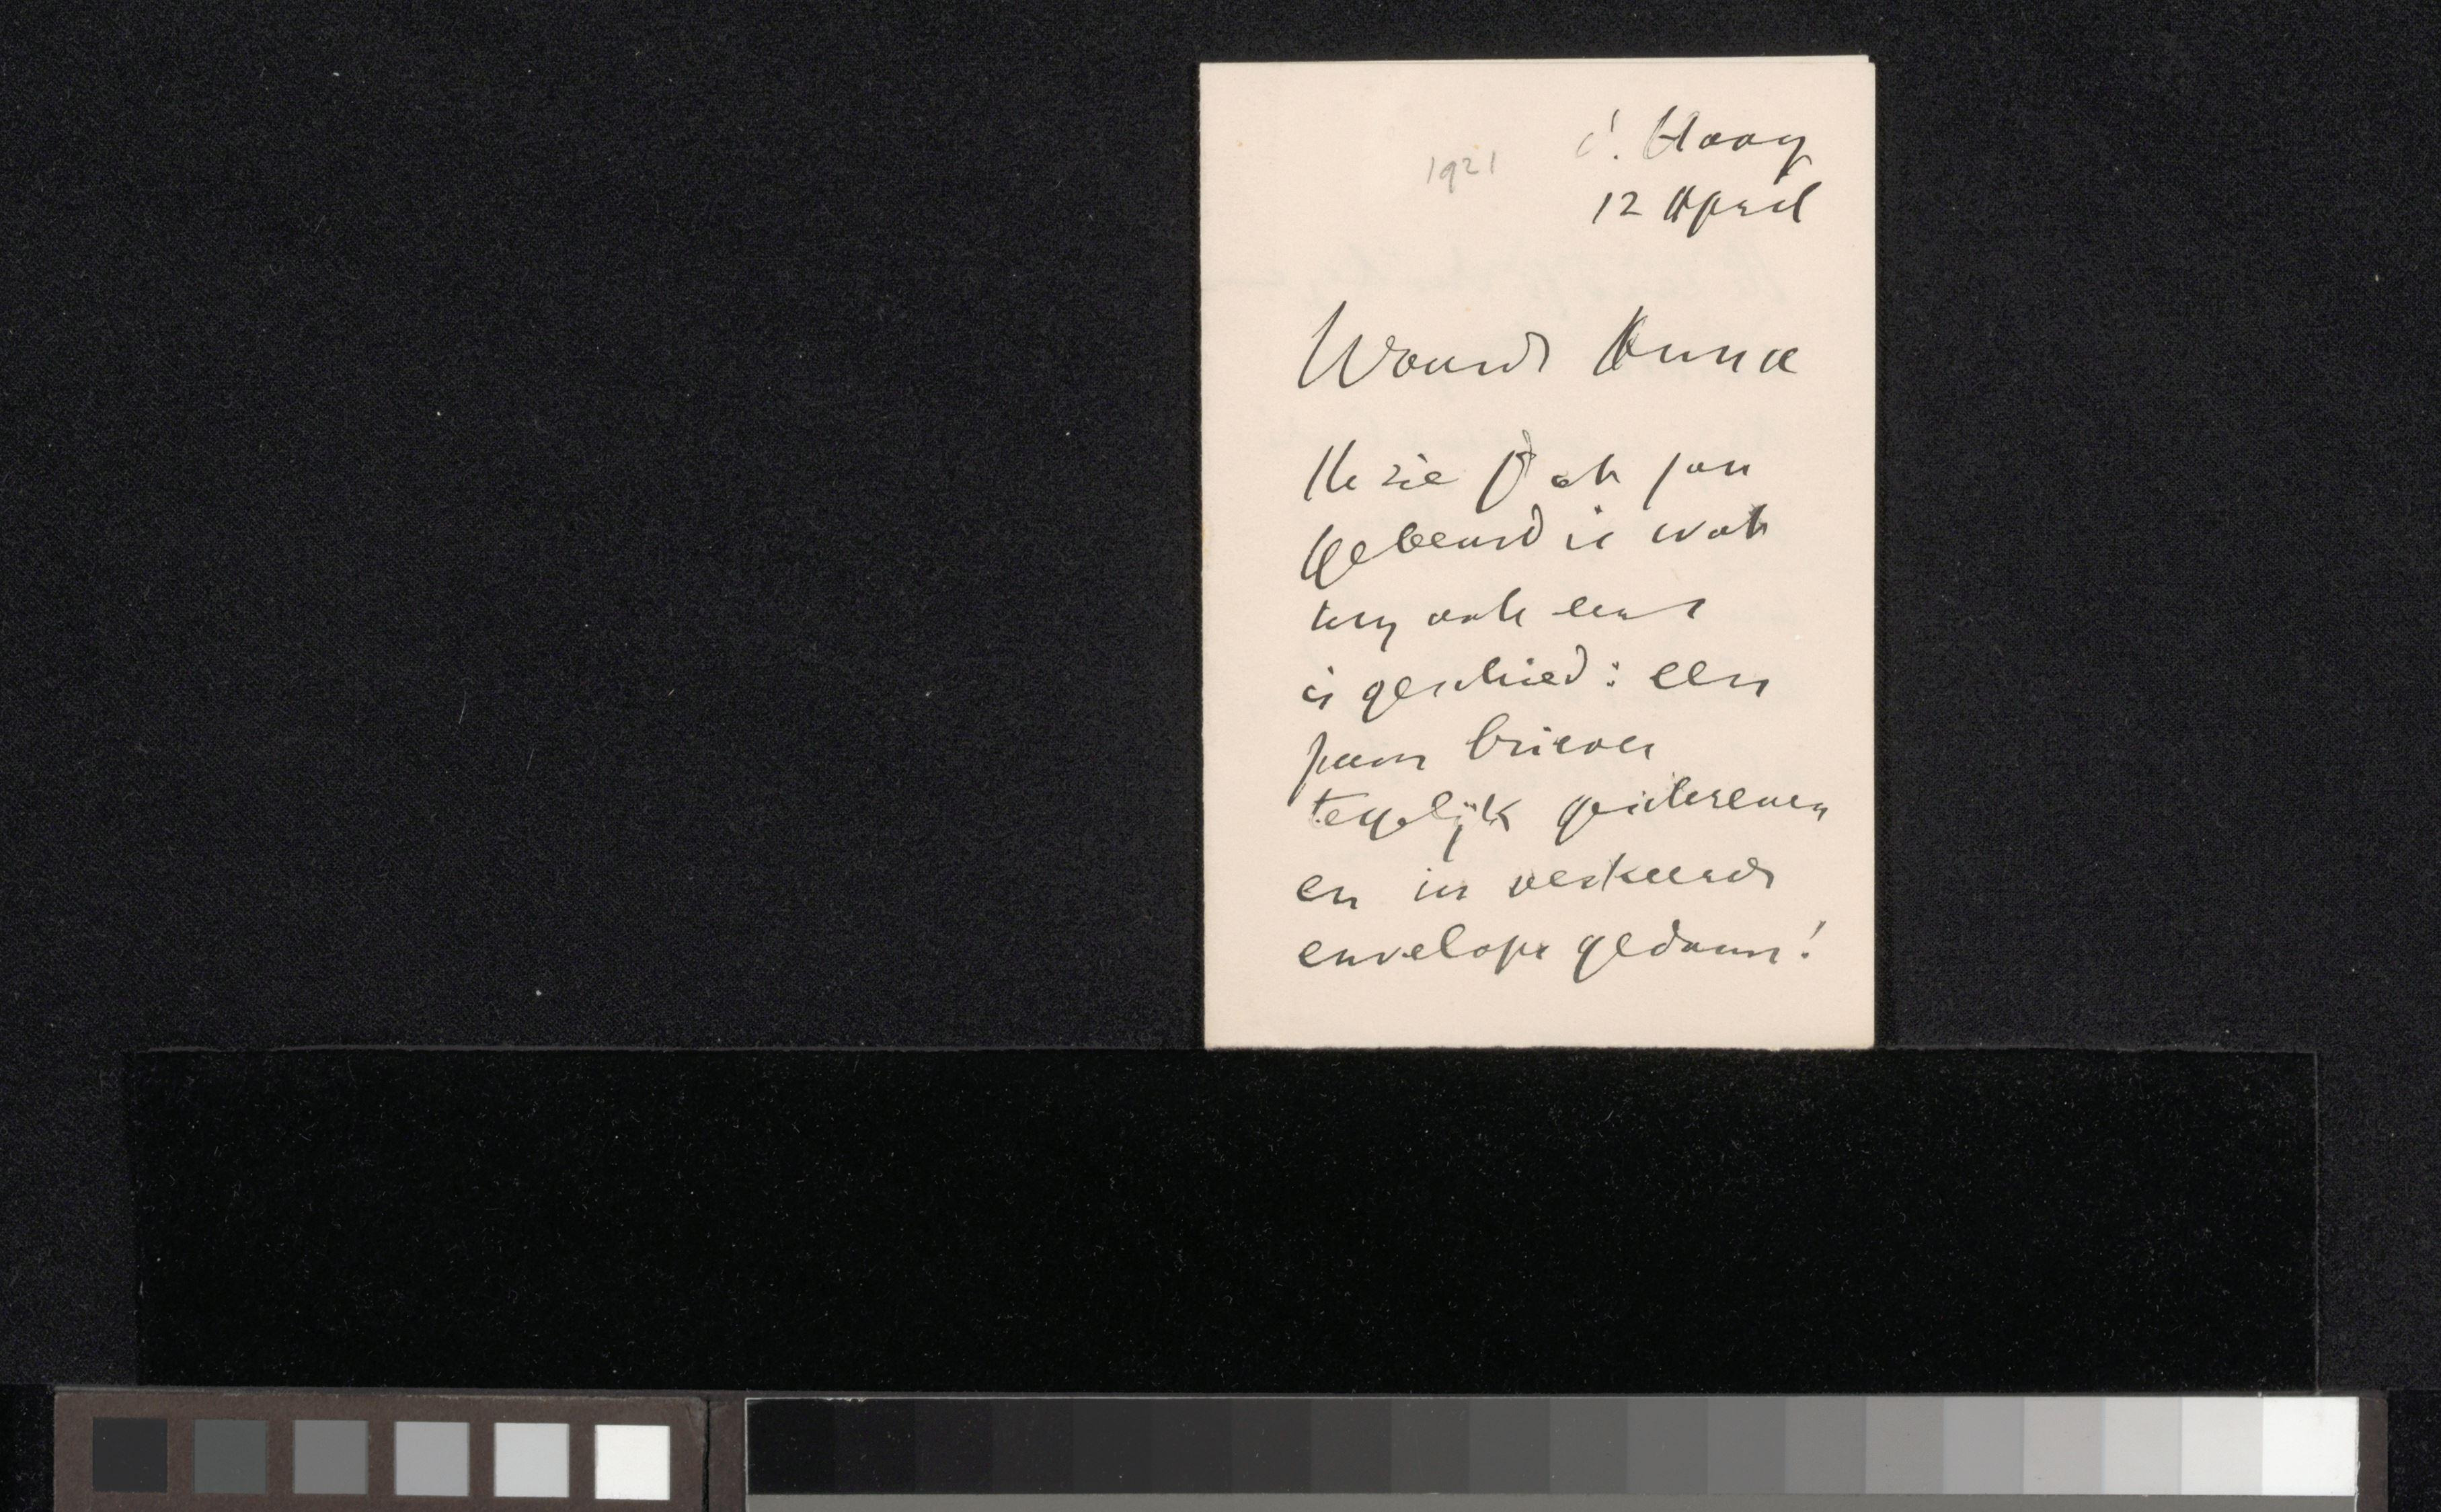 d'. Haag
1921
12 April
Waarde Anna
Ik zie dat jou
gebeurd is wat
my ook eens
is geschied: een
paar brieven
tegelijk geschreven
en in verkeerde
envelope gedaan!